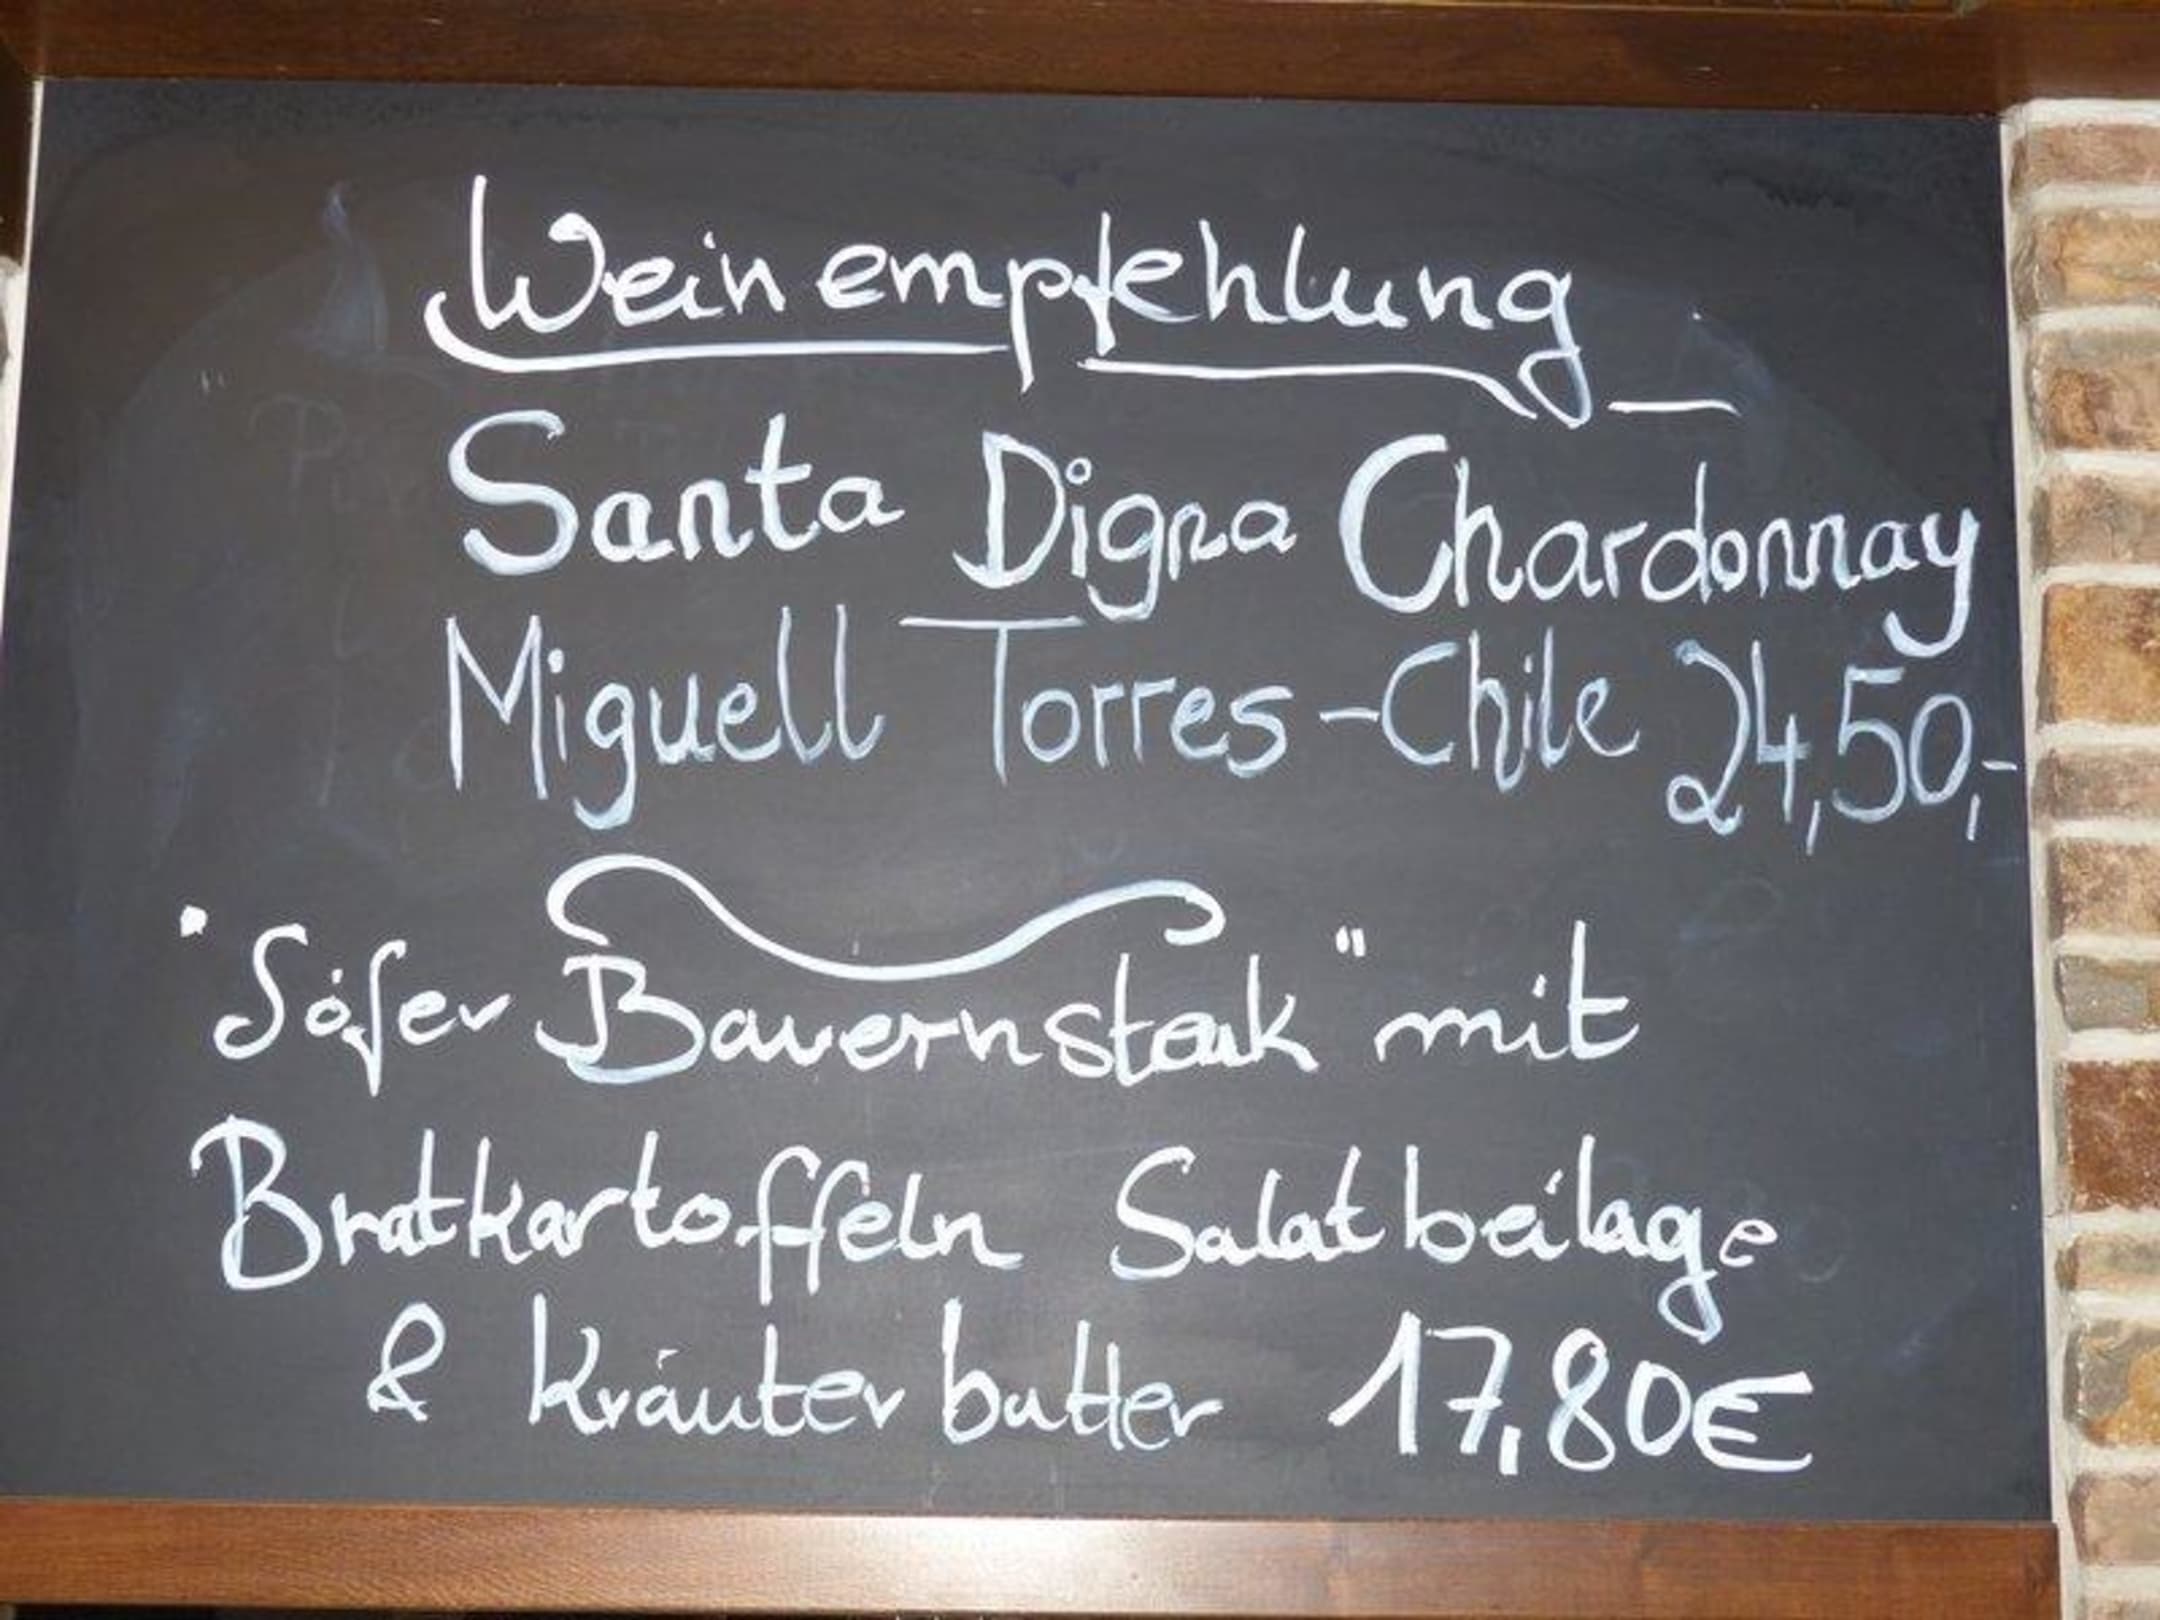 Weinempfehlung
Santa Digna Chardonnay
Miguell Torres-Chile 24,50,-
Bauernsteak" mit
Bratkartoffeln Salatbeilage
& Kräuterbutter 17,80€